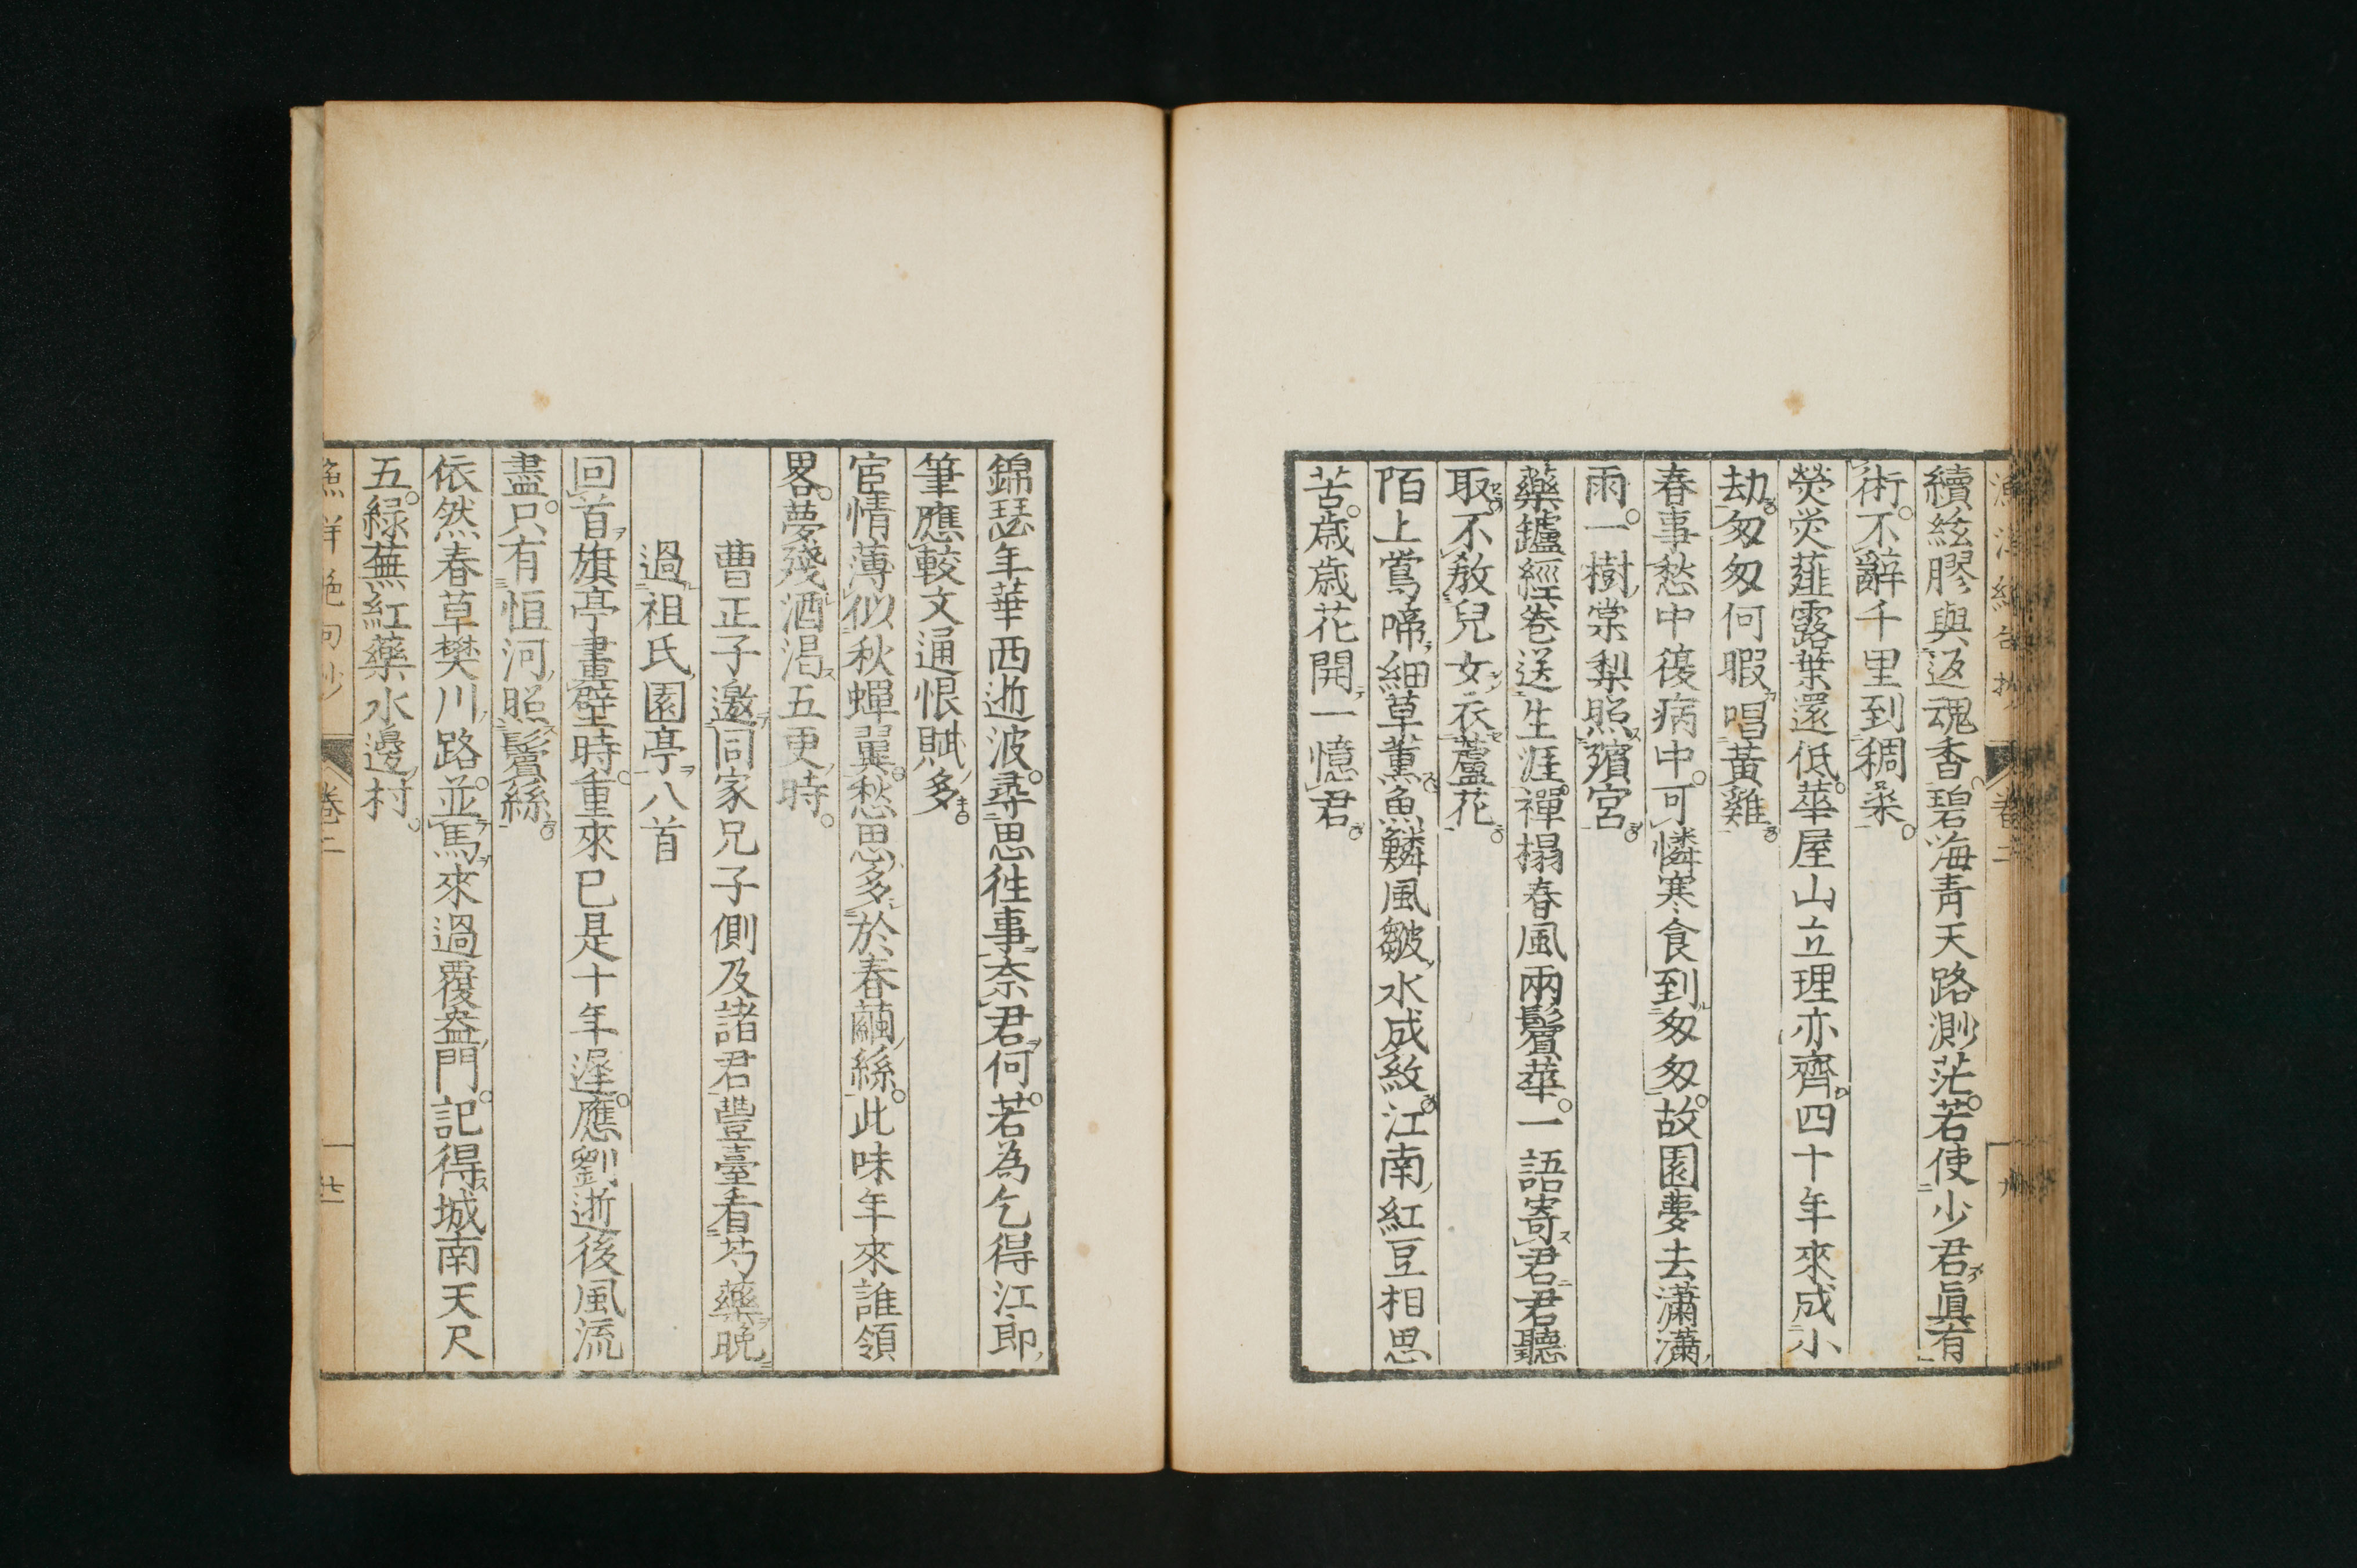 續絃膠與返魂香碧海靑天路渺茫若使少君眞有
術不辭千里到稠桑
熒熒薤露葉還低華屋山丘理亦齊四十年來成小
劫匆匆何暇唱黃雞
春事愁中復病中可憐寒食到匆匆故園夢去瀟瀟
雨一樹棠梨照殯宮
藥鑪經卷送生涯禪榻春風兩鬢華一語寄君君聽
取不敎兒女衣蘆花
陌上鶯啼細草薰魚鱗風皺水成紋江南紅豆相思
苦歲歲花開一憶君
錦瑟年華西逝波尋思往事奈君何若爲乞得江郎
筆應較文通恨賦多
宦情薄似秋蟬翼愁思多於春繭絲此味年來誰領
畧夢殘酒渴五更時
曹正子邀同家兄子側及諸君豐臺看芍藥晚
過祖氏園亭八首
回首旗亭畫壁時重來已是十年遲應劉逝後風流
盡只有恒河照鬢絲
依然春草樊川路並馬來過覆盎門記得城南天尺
五綠蕪紅藥水邊村
卷二